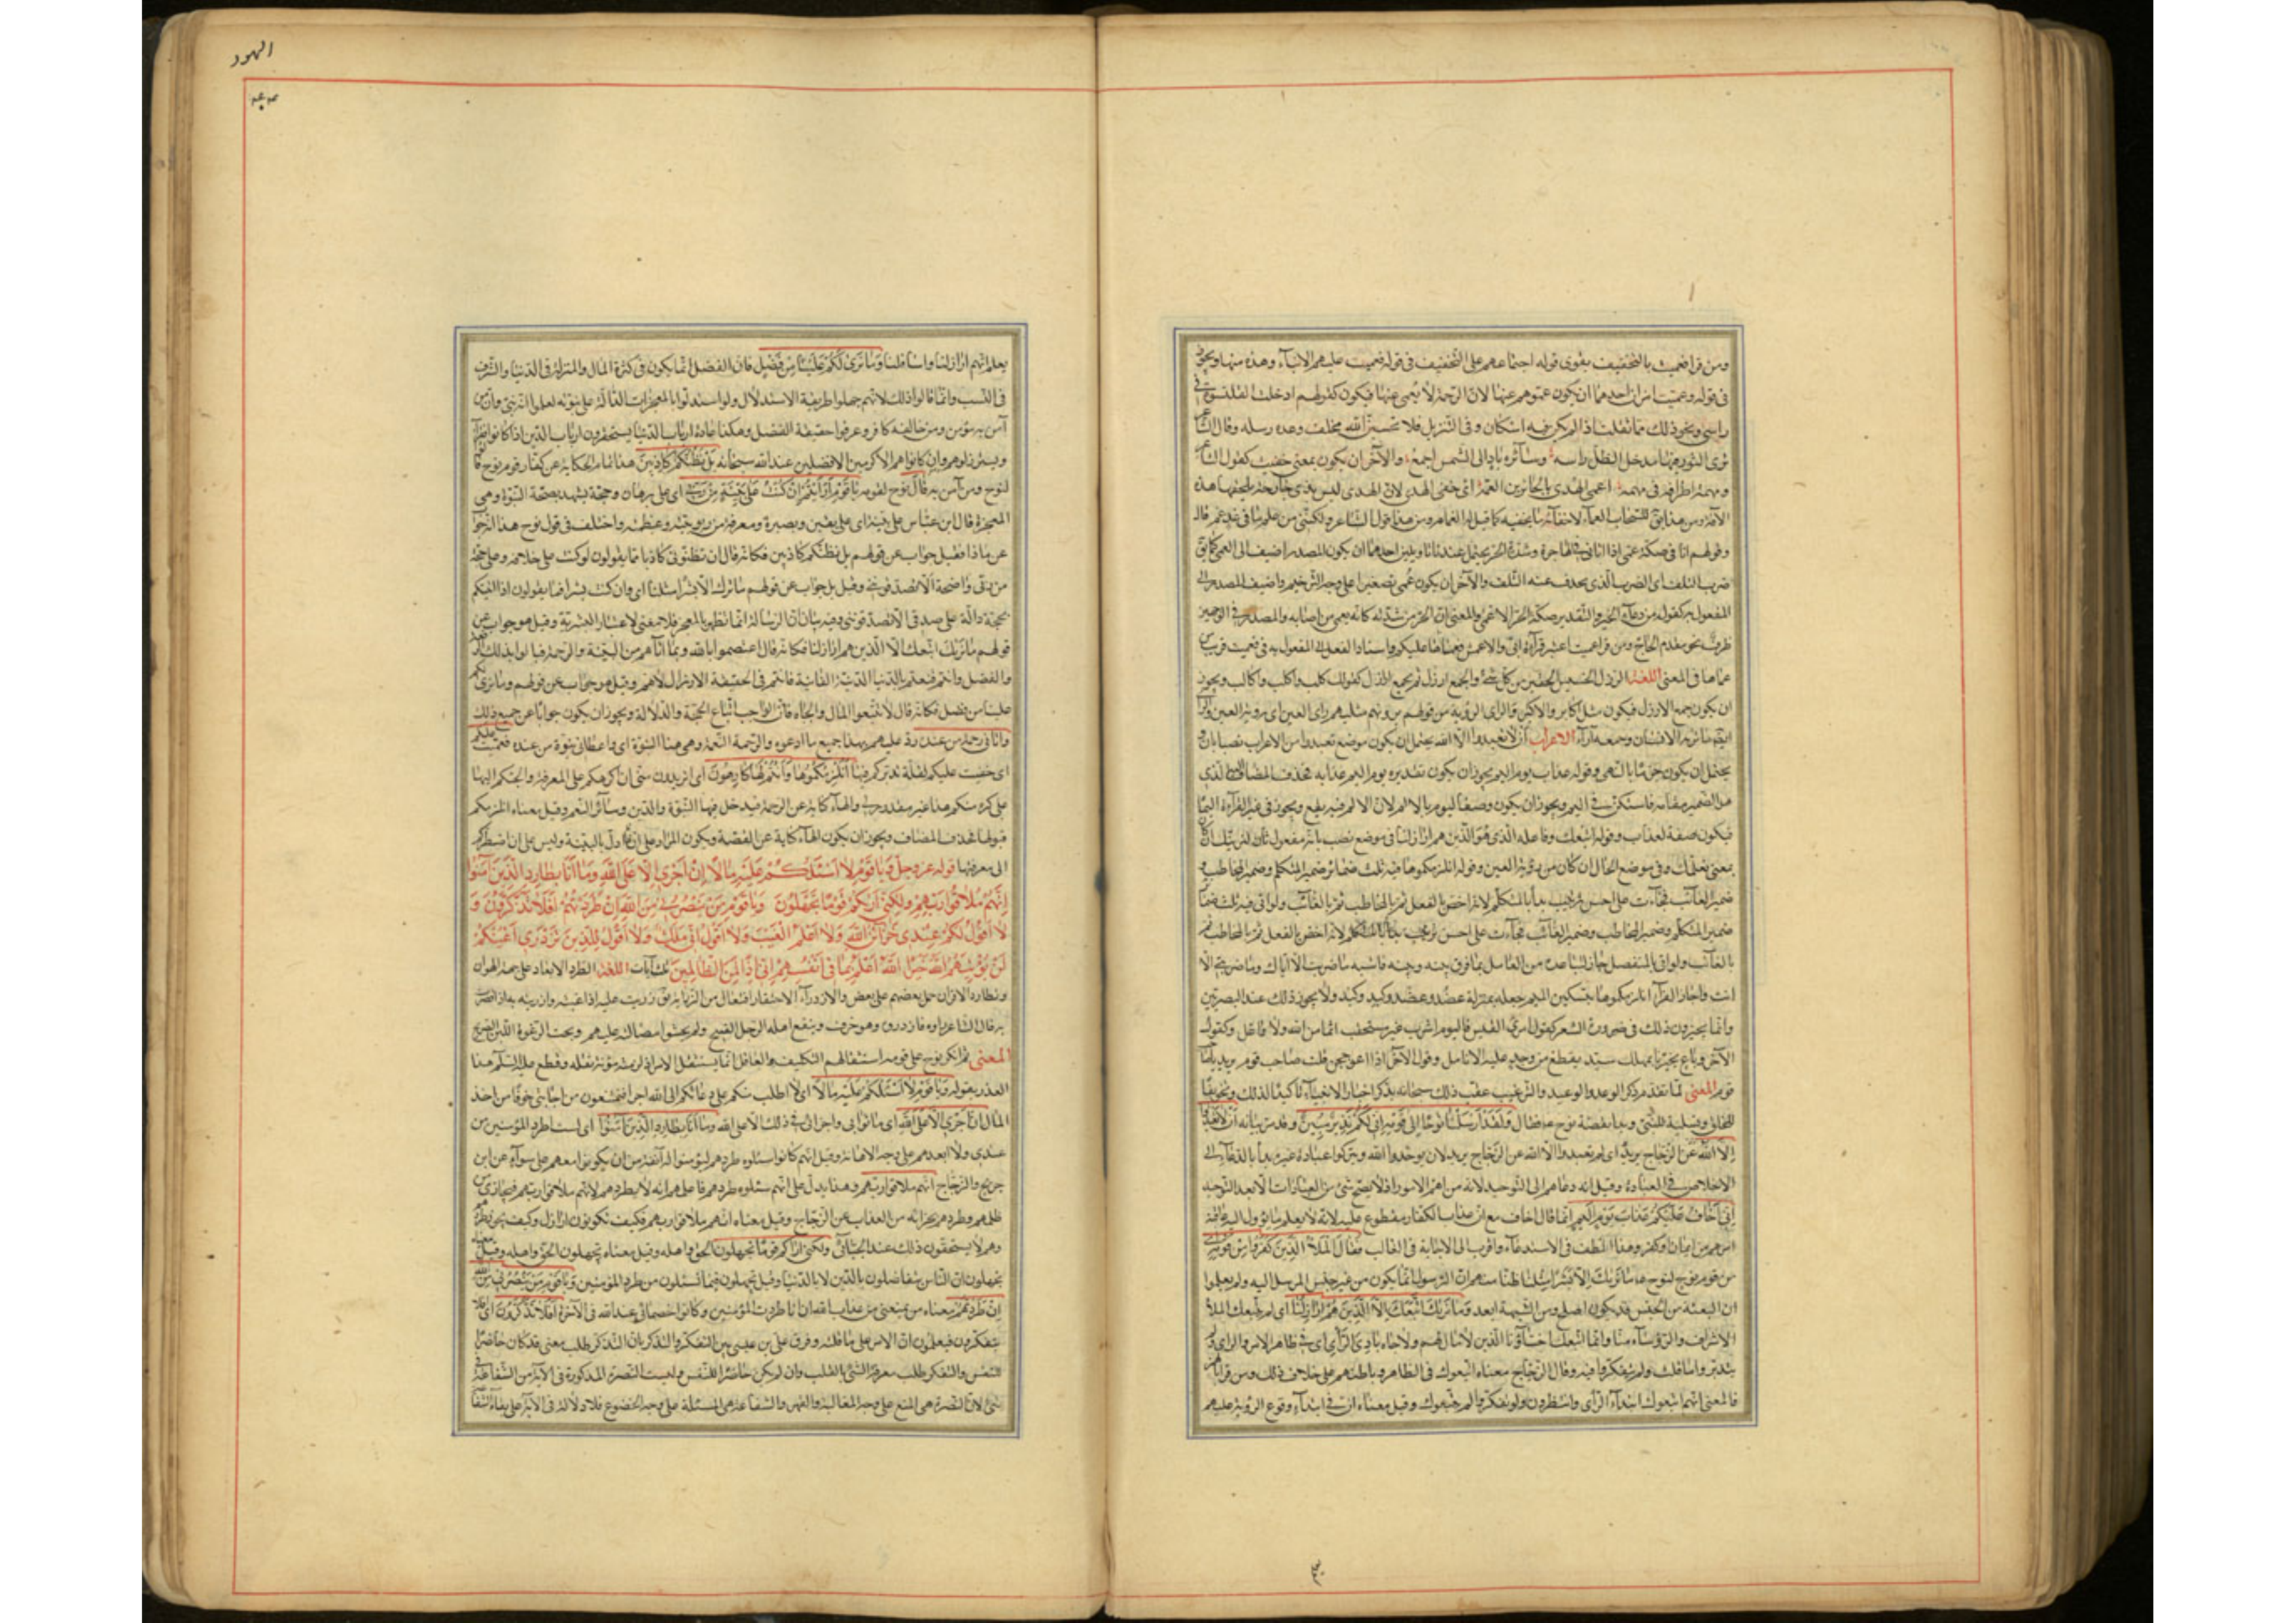 ومن قرا فعميت بالتخفيف يقوى قوله اجتماعهم على التخفيف في قوله فعميت عليهم الانباء وهذه مثلها ويجوز
في قوله وعميت امران احدهما ان يكون عموهم عنها لان الرحمة لا تعمى عنها فيكون كقولهم ادخلت القلنسوة في
راسي ونحو ذلك مما يقلب اذا لم يكن فيه اشكال وفي التنزيل فلا تحسبن الله مخلف وعده رسله وقال الشاعر
ترى الثور فيها مدخل الظل راسه وسائره باد الى الشمس اجمع والآخر ان يكون بمعنى خفيت كقول الشاعر
ومهمة اطرافه في مهمه اعمى الهدى بالحائرين العمه اي خفي الهدى لان الهدى ليس بذي جارحة تلحقها هذه
الآفة ومن هذا قيل للسحاب العماء لاخفائه ما يخفيه كما قيل له الغمام ومن هذا قول الشاعر ولكنني من علم ما في غد عم
وقولهم اتانا في صكة عمي اذا اتانا في الهاجرة وشدة الحر يحتمل عندنا تاويلين احدهما ان يكون المصدر اضيف الى العمي كما قيل
ضرب التلف اي الضرب الذي يحدث عنه التلف والآخر ان يكون عمي تصغير اعمى على وجه الترخيم واضيف المصدر الى
المفعول به كقوله من دعاء الخير والتقدير صكة الحر الاعمى والمعنى ان الحر من شدته كانه يعمي من اصابه والمصدر في الوجهين
ظرف نحو مقدم الحاج ومن قرا عميت اعتبر قراءة ابي والاعمش فعماها عليكم واسناد الفعل الى المفعول به في فعميت قريب من
عماها في المعنى اللغة الرذل الخسيس الحقير من كل شيء والجمع ارذل ثم يجمع اراذل كقولك كلب واكلب واكالب ويجوز
ان يكون جمع الارذل فيكون مثل اكابر والاكبر والراي الرؤية من قولهم يرونهم مثليهم راي العين اي رؤية العين والراي
ايضا ما يراه الانسان وجمعه آراء الاعراب ان لا تعبدوا الا الله يحتمل ان يكون موضع تعبدوا من الاعراب نصبا بان و
يحتمل ان يكون جزما بالنهي وقوله عذاب يوم اليم يجوز ان يكون تقديره يوم اليم عذابه فحذف المضاف الذي
فيكون صفة لعذاب وقوله اتبعك وفاعله الذي هو الذين هم اراذلنا في موضع نصب بانه مفعول ثان لنراك ان كان
بمعنى نعلمك وفي موضع الحال ان كان من رؤية العين وقوله انلزمكموها فيه ثلث ضمائر ضمير المتكلم وضمير المخاطب و
ضمير الغائب فجاءت على احسن ترتيب بدأ بالمتكلم لانه اخص بالفعل ثم بالمخاطب ثم بالغائب ولو اتى فيه ثلث ضمائر
ضمير المتكلم وضمير المخاطب وضمير الغائب فجاءت على احسن ترتيب بدأ بالمتكلم لانه اخص بالفعل ثم بالمخاطب ثم
بالغائب ولو اتى بالمنفصل جاز لتباعده من العامل بما فرق بينه وبينه فاشبه ما ضربت الا اياك وما ضربني الا
انت واجاز الفراء انلزمكموها بتسكين الميم جعله بمنزلة عضد وعضد وكبد وكبد ولا يجوز ذلك عند البصريين
وانما يجيزون ذلك في ضرورة الشعر كقول امرئ القيس فاليوم اشرب غير مستحقب اثما من الله ولا واغل وكقول
الآخر وناع يخبرنا بمهلك سيد يقطع من وجد عليه الانامل وقول الآخر اذا اعوججن قلت صاحب قوم يريد يا صاحب
قوم المعنى لما تقدم ذكر الوعد والوعيد والترغيب عقب ذلك سبحانه بذكر اخبار الانبياء تاكيدا لذلك وتخويفا
للخلق وتسلية للنبي وبدا بقصة نوح عم فقال ولقد ارسلنا نوحا الى قومه اني لكم نذير مبين وقد مر بيانه ان لا تعبدوا
الا الله عن الزجاج يريد اي لم تعبدوا الا الله عن الزجاج يريد لان يوحدوا الله ويتركوا عبادة غيره بدأ بالدعاء الى
الاخلاص في العبادة وقيل انه دعاهم الى التوحيد لانه من اهم الامور اذ لا يصح شيء من العبادات الا بعد التوحيد
اني اخاف عليكم عذاب يوم اليم انما قال اخاف مع ان عذاب الكفار مقطوع عليه لانه لا يعلم ما يؤول اليه عاقبة
امرهم من ايمان او كفر وهذا الطف في الاستدعاء واقرب الى الاجابة في الغالب فقال الملأ الذين كفروا من قومه
من قوم نوح لنوح ما نراك الا بشرا مثلنا ظنا منهم ان الرسول انما يكون من غير جنس المرسل اليه ولم يعلموا
ان البعثة من الجنس قد يكون اصلح ومن الشبهة ابعد وما نراك اتبعك الا الذين هم اراذلنا اي لم يتبعك الملأ
الاشراف والرؤساء منا وانما اتبعك اخساؤنا الذين لا مال لهم ولا جاه بادي الراي اي في ظاهر الامر والراي ولم
يتدبروا ما قلت ولم يتفكروا فيه وقال الزجاج معناه اتبعوك في الظاهر وباطنهم على خلاف ذلك ومن قرا بالهمز
فالمعنى انهم اتبعوك ابتداء الراي ولو تفكروا لم يتبعوك وقيل معناه ان في ابتداء وقوع الرؤية عليهم
الهود
يعلم انهم اراذلنا واسافلنا وما نرى لكم علينا من فضل فان الفضل انما يكون في كثرة المال والمنزلة في الدنيا والشرف
في النسب وانما قالوا ذلك لانهم جهلوا طريقة الاستدلال ولو استدلوا بالمعجزات الدالة على نبوته لعلموا انه نبي وان من
آمن به مؤمن ومن خالفه كافر وعرفوا حقيقة الفضل وهكذا عادة ارباب الدنيا يستحقرون ارباب الدين اذا كانوا فقراء
ويسترذلونهم وان كانوا هم الاكرمين الافضلين عند الله سبحانه بل نظنكم كاذبين هذا تمام الحكاية عن كفار قوم نوح قالوه
لنوح ومن آمن به قال نوح لقومه يا قوم ارايتم ان كنت على بينة من ربي اي على برهان وحجة يشهد بصحة النبوة وهي
المعجزة قال ابن عباس على بينة اي على يقين وبصيرة ومعرفة من ربوبيته وعظمته واختلف في قول نوح هذا انه جواب
عن ماذا فقيل جواب عن قولهم بل نظنكم كاذبين فكانه قال ان تظنوني كاذبا فما تقولون لو كنت على خلافه وعلى حجة
من ربي واضحة الا تصدقونني وقيل بل جواب عن قولهم ما نراك الا بشرا مثلنا اي وان كنت بشرا فما تقولون اذا اتيتكم
بحجة دالة على صدقي الا تصدقونني وفيه بيان ان الرسالة انما تظهر بالمعجز فلا معنى لاعتبار البشرية وقيل هو جواب عن
قولهم ما نراك اتبعك الا الذين هم اراذلنا فكانه قال اعتصموا بالله وبما اتاهم من البينة والرحمة فنالوا بذلك
والفضل وانتم قنعتم بالدنيا الدنية الفانية فانتم في الحقيقة الاراذل لا هم وقيل هو جواب عن قولهم وما نرى لكم
علينا من فضل فكانه قال لا تتبعوا المال والجاه فان الواجب اتباع الحجة والدلالة ويجوز ان يكون جوابا عن جميع ذلك
واتاني رحمة من عنده رد عليهم بهذا جميع ما ادعوه والرحمة النعمة وهي هنا النبوة اي واعطاني نبوة من عنده فعميت عليكم
اي خفيت عليكم لقلة تدبركم فيها انلزمكموها وانتم لها كارهون اي اتريدون مني ان اكرهكم على المعرفة والجئكم اليها
على كره منكم هذا غير مقدور لي والهاء كناية عن الرحمة فيدخل فيها النبوة والدين وسائر النعم وقيل معناه انلزمكم
قبولها فحذف المضاف ويجوز ان يكون الهاء كناية عن القصة ويكون المراد على ان ادل بالبينة وليس علي ان اضطركم
الى معرفتها قوله عز وجل ويا قوم لا اسئلكم عليه مالا ان اجري الا على الله وما انا بطارد الذين آمنوا
انهم ملاقوا ربهم ولكني اريكم قوما تجهلون ويا قوم من ينصرني من الله ان طردتهم افلا تذكرون و
لا اقول لكم عندي خزائن الله ولا اعلم الغيب ولا اقول اني ملك ولا اقول للذين تزدري اعينكم
لن يؤتيهم الله خيرا الله اعلم بما في انفسهم اني اذا لمن الظالمين ثلث آيات اللغة الطرد الابعاد على جهة الهوان
وتطارد الاقران حمل بعضهم على بعض والازدراء الاحتقار افتعال من الزراية يقال زريت عليه اذا عبته وازريت به اذا قصرت
به قال الشاعر راوه فازدروه وهو خرق وينفع اهله الرجل القبيح ولم يخشوا مصالته عليهم وتحت الرغوة اللبن الصريح
المعنى ثم انكر نوح على قومه استثقالهم التكليف والعاقل انما يستثقل الامر اذا لزمته مؤنة ثقله وقطع عليه السلم هذا
العذر بقوله ويا قوم لا اسئلكم عليه مالا اي لا اطلب منكم على دعائكم الى الله اجرا فتمتنعون من اجابتي خوفا من اخذ
المال ان اجري الا على الله اي ما ثوابي واجرتي في ذلك الا على الله وما انا بطارد الذين آمنوا اي لست اطرد المؤمنين من
عندي ولا ابعدهم على وجه الاهانة وقيل انهم كانوا سئلوه طردهم ليؤمنوا له انفة من ان يكونوا معهم على سواء عن ابن
جريج والزجاج انهم ملاقوا ربهم وهذا يدل على انهم سئلوه طردهم فاعلمهم انه لا يطردهم لانهم ملاقوا ربهم فيجازي من
ظلمهم وطردهم بجزائه من العذاب عن الزجاج وقيل معناه انهم ملاقوا ربهم فكيف تكونون اراذل وكيف يجوز طردهم
وهم لا يستحقون ذلك عند الجبائي ولكني اريكم قوما تجهلون الحق واهله وقيل معناه تجهلون الحق واهله وقيل معناه
تجهلون ان الناس يتفاضلون بالدين لا بالدنيا وقيل تجهلون فيما تسئلون من طرد المؤمنين ويا قوم من ينصرني من الله
ان طردتهم معناه من يمنعني من عذاب الله ان انا طردت المؤمنين وكانوا خصمائي عند الله في الآخرة افلا تذكرون اي افلا
تتفكرون فتعلمون ان الامر على ما قلته وفرق علي بن عيسى بين التفكر والتذكر بان التذكر طلب معنى قد كان حاضرا
للنفس والتفكر طلب معرفة الشيء بالقلب وان لم يكن حاضرا للنفس وليست النصرة المذكورة في الآية من الشفاعة في
شيء لان النصرة هي المنع على وجه المغالبة والقهر والشفاعة هي المسئلة على وجه الخضوع فلا دلالة في الآية على